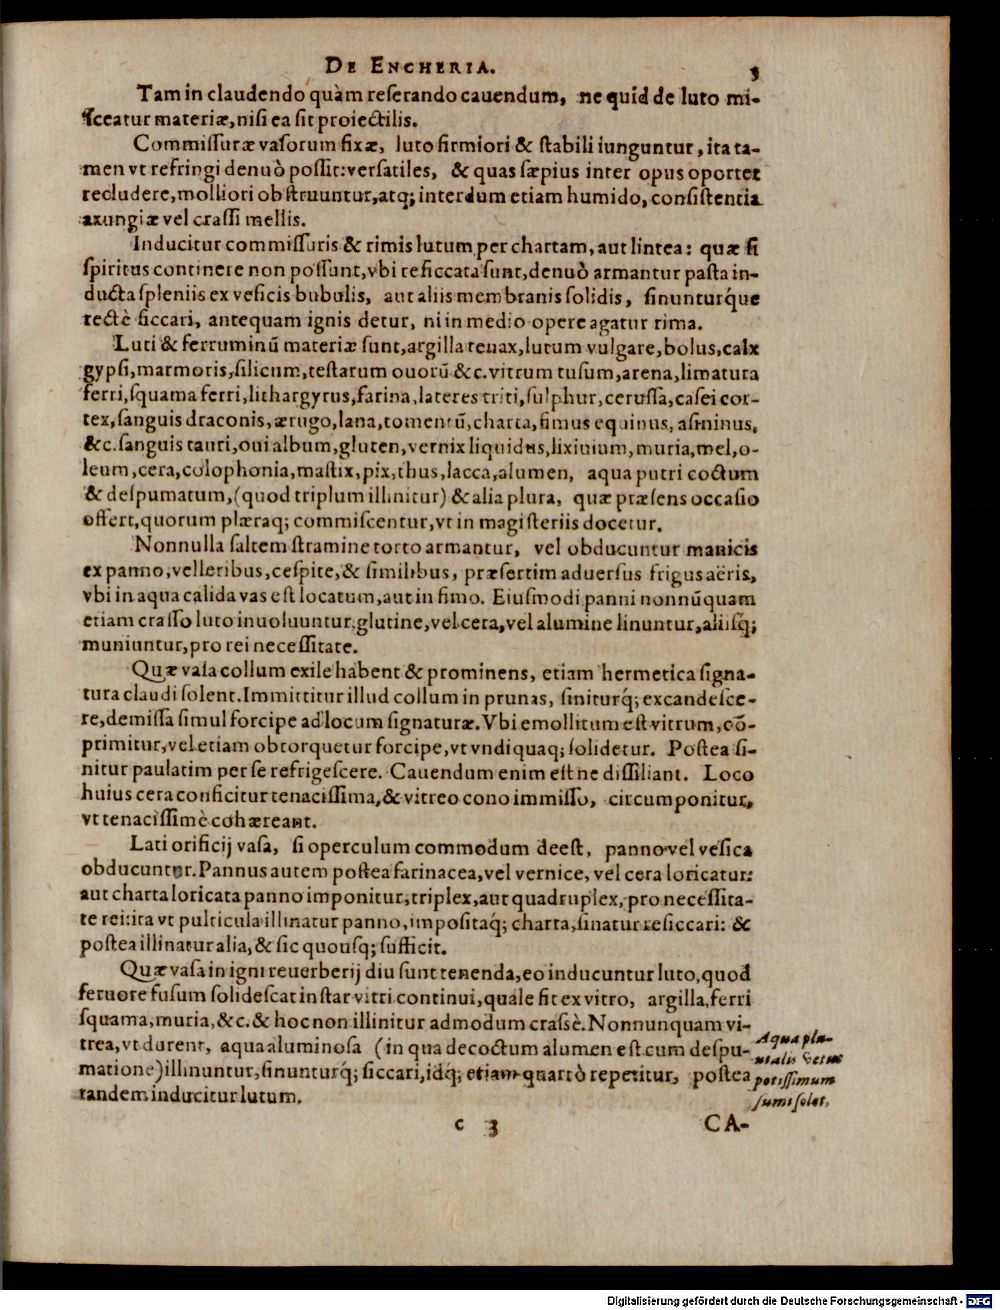 DE ENCHERIA. 3
Tam in claudendo quàm reſerando cauendum, ne quid de luto mi-
ſceatur materiæ, niſi ea ſit proiectilis.
Commiſſuræ vaſorum fixæ, luto firmiori & ſtabili iunguntur, ita ta-
men vt refringi denuò poſſit: verſatiles, & quas ſæpius inter opus oportet
recludere, molliori obſtruuntur, atq; interdum etiam humido, conſiſtentia
axungiæ vel craſſi mellis.
Inducitur commiſſuris & rimis lutum per chartam, aut lintea: quæ ſi
ſpiritus continere non poſſunt, vbi reſiccata ſunt, denuò armantur paſta in-
ducta ſpleniis ex veſicis bubulis, aut aliis membranis ſolidis, ſinunturq́ue
rectè ſiccari, antequam ignis detur, ni in medio opere agatur rima.
Luti & ferruminũ materiæ ſunt, argilla tenax, lutum vulgare, bolus, calx
gypſi, marmoris, ſilicum, teſtarum ouorũ &c. vitrum tuſum, arena, limatura
ferri, ſquama ferri, lithargyrus, farina, lateres triti, ſulphur, ceruſſa, caſei cor-
tex, ſanguis draconis, ærugo, lana, tomentũ, charta, fimus equinus, aſininus,
&c. ſanguis tauri, oui album, gluten, vernix liquidus, lixiuium, muria, mel, o-
leum, cera, colophonia, maſtix, pix, thus, lacca, alumen, aqua putri coctum
& deſpumatum, (quod triplum illinitur) & alia plura, quæ præſens occaſio
offert, quorum plæraq; commiſcentur, vt in magiſteriis docetur.
Nonnulla ſaltem ſtramine torto armantur, vel obducuntur manicis
ex panno, velleribus, ceſpite, & ſimilibus, præſertim aduerſus frigus aëris,
vbi in aqua calida vas eſt locatum, aut in fimo. Eiuſmodi panni nonnũquam
etiam craſſo luto inuoluuntur, glutine, vel cera, vel alumine linuntur, aliisq́;
muniuntur, pro rei neceſſitate.
Quæ vaſa collum exile habent & prominens, etiam hermetica ſigna-
tura claudi ſolent. Immittitur illud collum in prunas, ſiniturq́; excandeſce-
re, demiſſa ſimul forcipe ad locum ſignaturæ. Vbi emollitum eſt vitrum, cõ-
primitur, vel etiam obtorquetur forcipe, vt vndiquaq; ſolidetur. Poſtea ſi-
nitur paulatim per ſe refrigeſcere. Cauendum enim eſt ne diſſiliant. Loco
huius cera conficitur tenaciſſima, & vitreo cono immiſſo, circumponitur,
vt tenaciſſimè cohæreant.
Lati orificij vaſa, ſi operculum commodum deeſt, panno vel veſica
obducuntur. Pannus autem poſtea farinacea, vel vernice, vel cera loricatur:
aut charta loricata panno imponitur, triplex, aut quadruplex, pro neceſſita-
te rei: ita vt pulticula illinatur panno, impoſitaq́; charta, ſinatur reſiccari: &
poſtea illinatur alia, & ſic quouſq; ſufficit.
Quæ vaſa in igni reuerberij diu ſunt tenenda, eo inducuntur luto, quod
feruore fuſum ſolideſcat inſtar vitri continui, quale fit ex vitro, argilla, ferri
ſquama, muria, &c. & hoc non illinitur admodum craſsè. Nonnunquam vi-
trea, vt durent, aqua aluminoſa (in qua decoctum alumen eſt cum deſpu-
matione) illinuntur, ſinunturq́; ſiccari, idq́; etiam quartò repetitur, poſtea
tandem inducitur lutum.
Aqua plu-
uialis vetus
potiſſimum
ſumi ſolet.
c 3 CA-
Digitalisierung gefördert durch die Deutsche Forschungsgemeinschaft - DFG